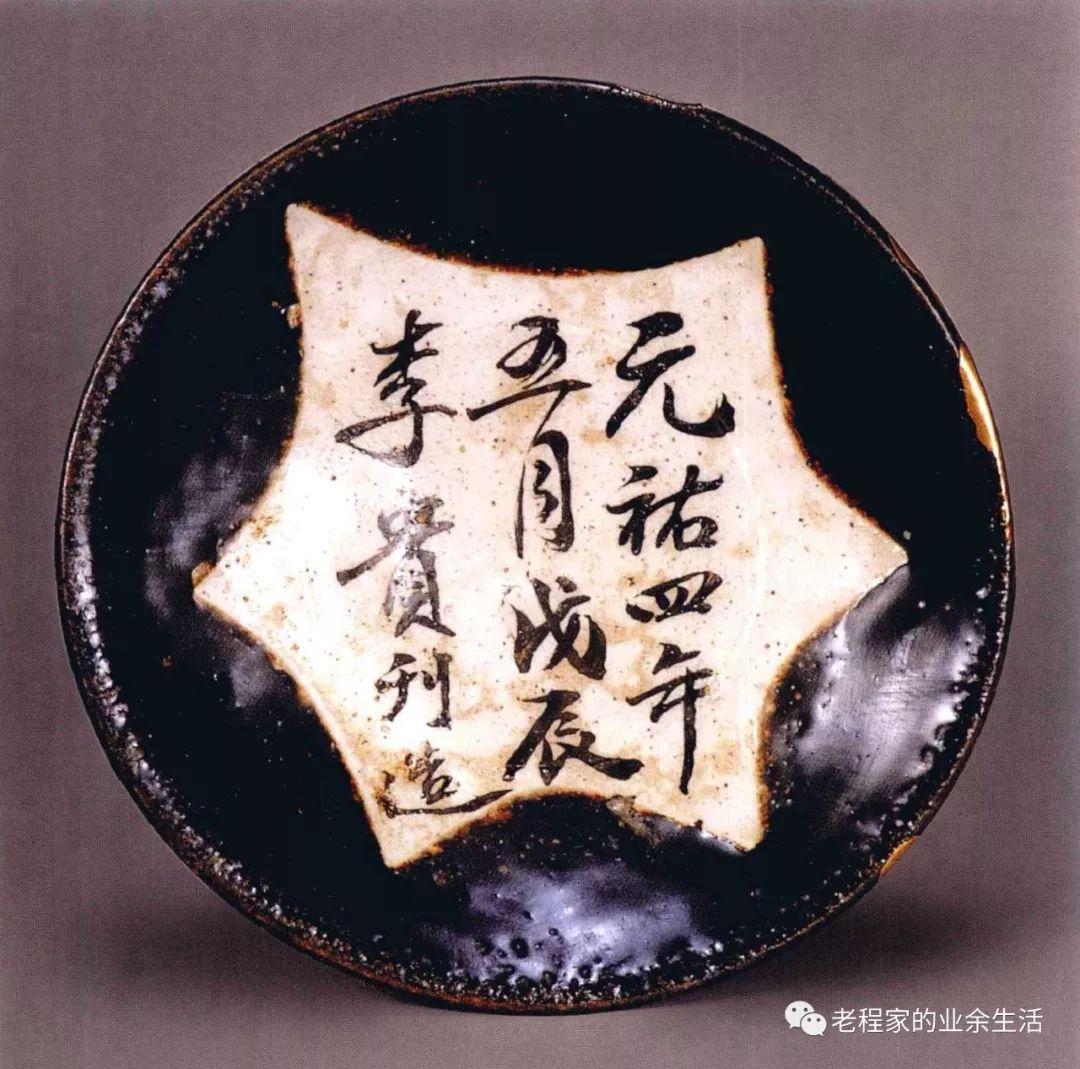 元祐四年
五月戊辰
李貴刊造
老程家的业余生活